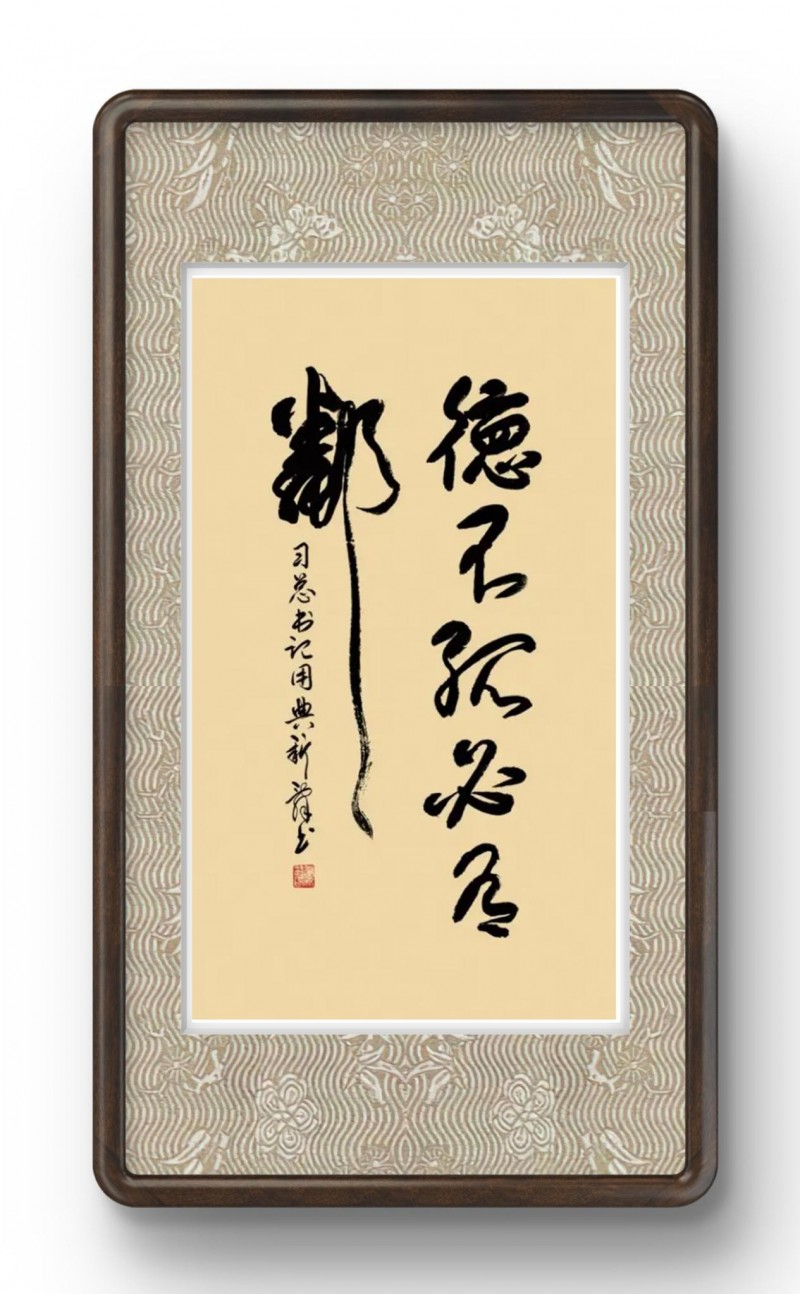 德不孤必有
鄰
习总书记用典新译书